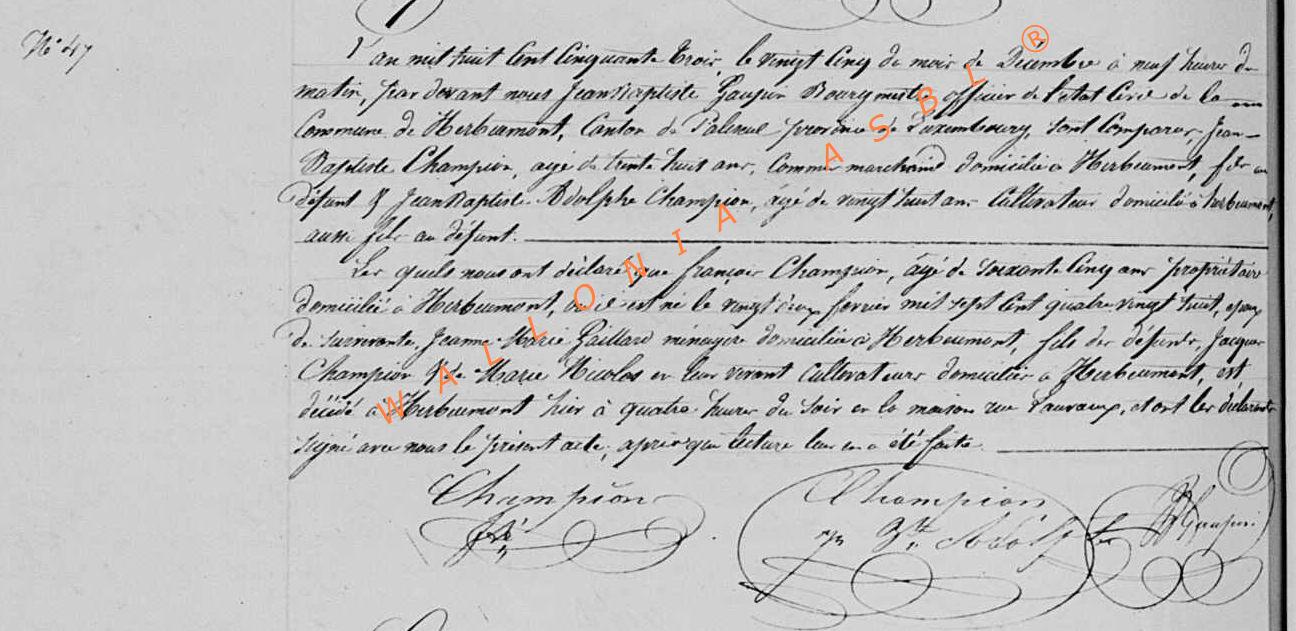 N° 47
L'an mil huit Cent Cinquante trois, le vingt Cinq du mois de Décembre à neuf heures du
matin, par devant nous Jean Baptiste Gaupin Bourgmestre officier de l'état Civil de la
Commune de Herbeumont, Canton de Paliseul province de Luxembourg, sont Comparus, Jean-
Baptiste Champion, agé de trente huit ans, Commis marchand domicilié à Herbeumont, fils au
défunt & Jean Baptiste Adolphe Champion, âgé de vingt huit ans Cultivateur domicilié à herbeumont,
aussi fils au défunt.
Les quels nous ont déclaré que françois Champion, âgé de soixante Cinq ans propriétaire
domicilié à Herbeumont, où il est né le vingt deux fevrier mil sept Cent quatre vingt huit, epoux
de survivante, Jeanne Marie Gaillard ménagère domiciliée à Herbeumont, fils des défunts, Jacques
Champion & de Marie Nicolas en leur vivant Cultivateurs domiciliés à Herbeumont, est
décédé à Herbeumont hier à quatre heures du soir en la maison rue Lauvaux, et ont les déclarants
signé avec nous le présent acte, après que lecture leur en a été faite.
Champion
Champion
JB Gaupin
Jn Bte Adolphe
WALLONIA ASBL ®